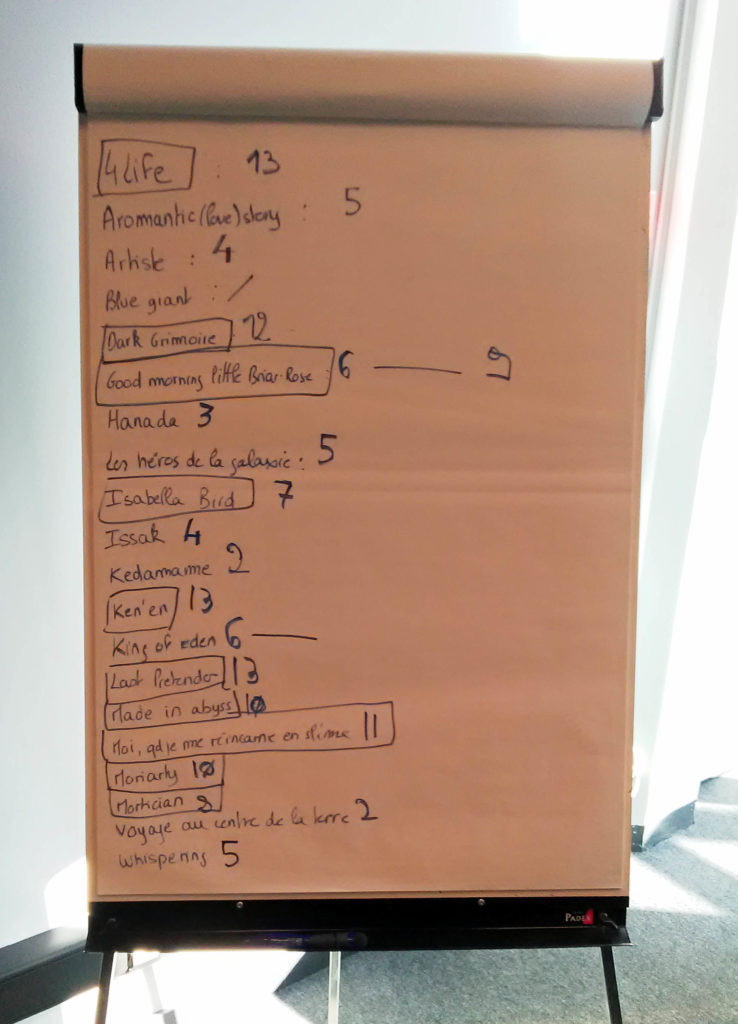 4Life : 13
Aromantic (love) story : 5
Artiste : 4
Blue giant : /
Dark Grimoire 12
Good morning little Briar-Rose : 6 — 9
Hanada 3
Les héros de la galaxie : 5
Isabella Bird 7
Issak 4
Kedamame 2
Ken'en 13
King of eden 6 —
Last Pretender 13
Made in abyss 10
Moi, qd je me réincarne en slime 11
Moriarty 10
Mortician
Voyage au centre de la terre 2
Whispering 5